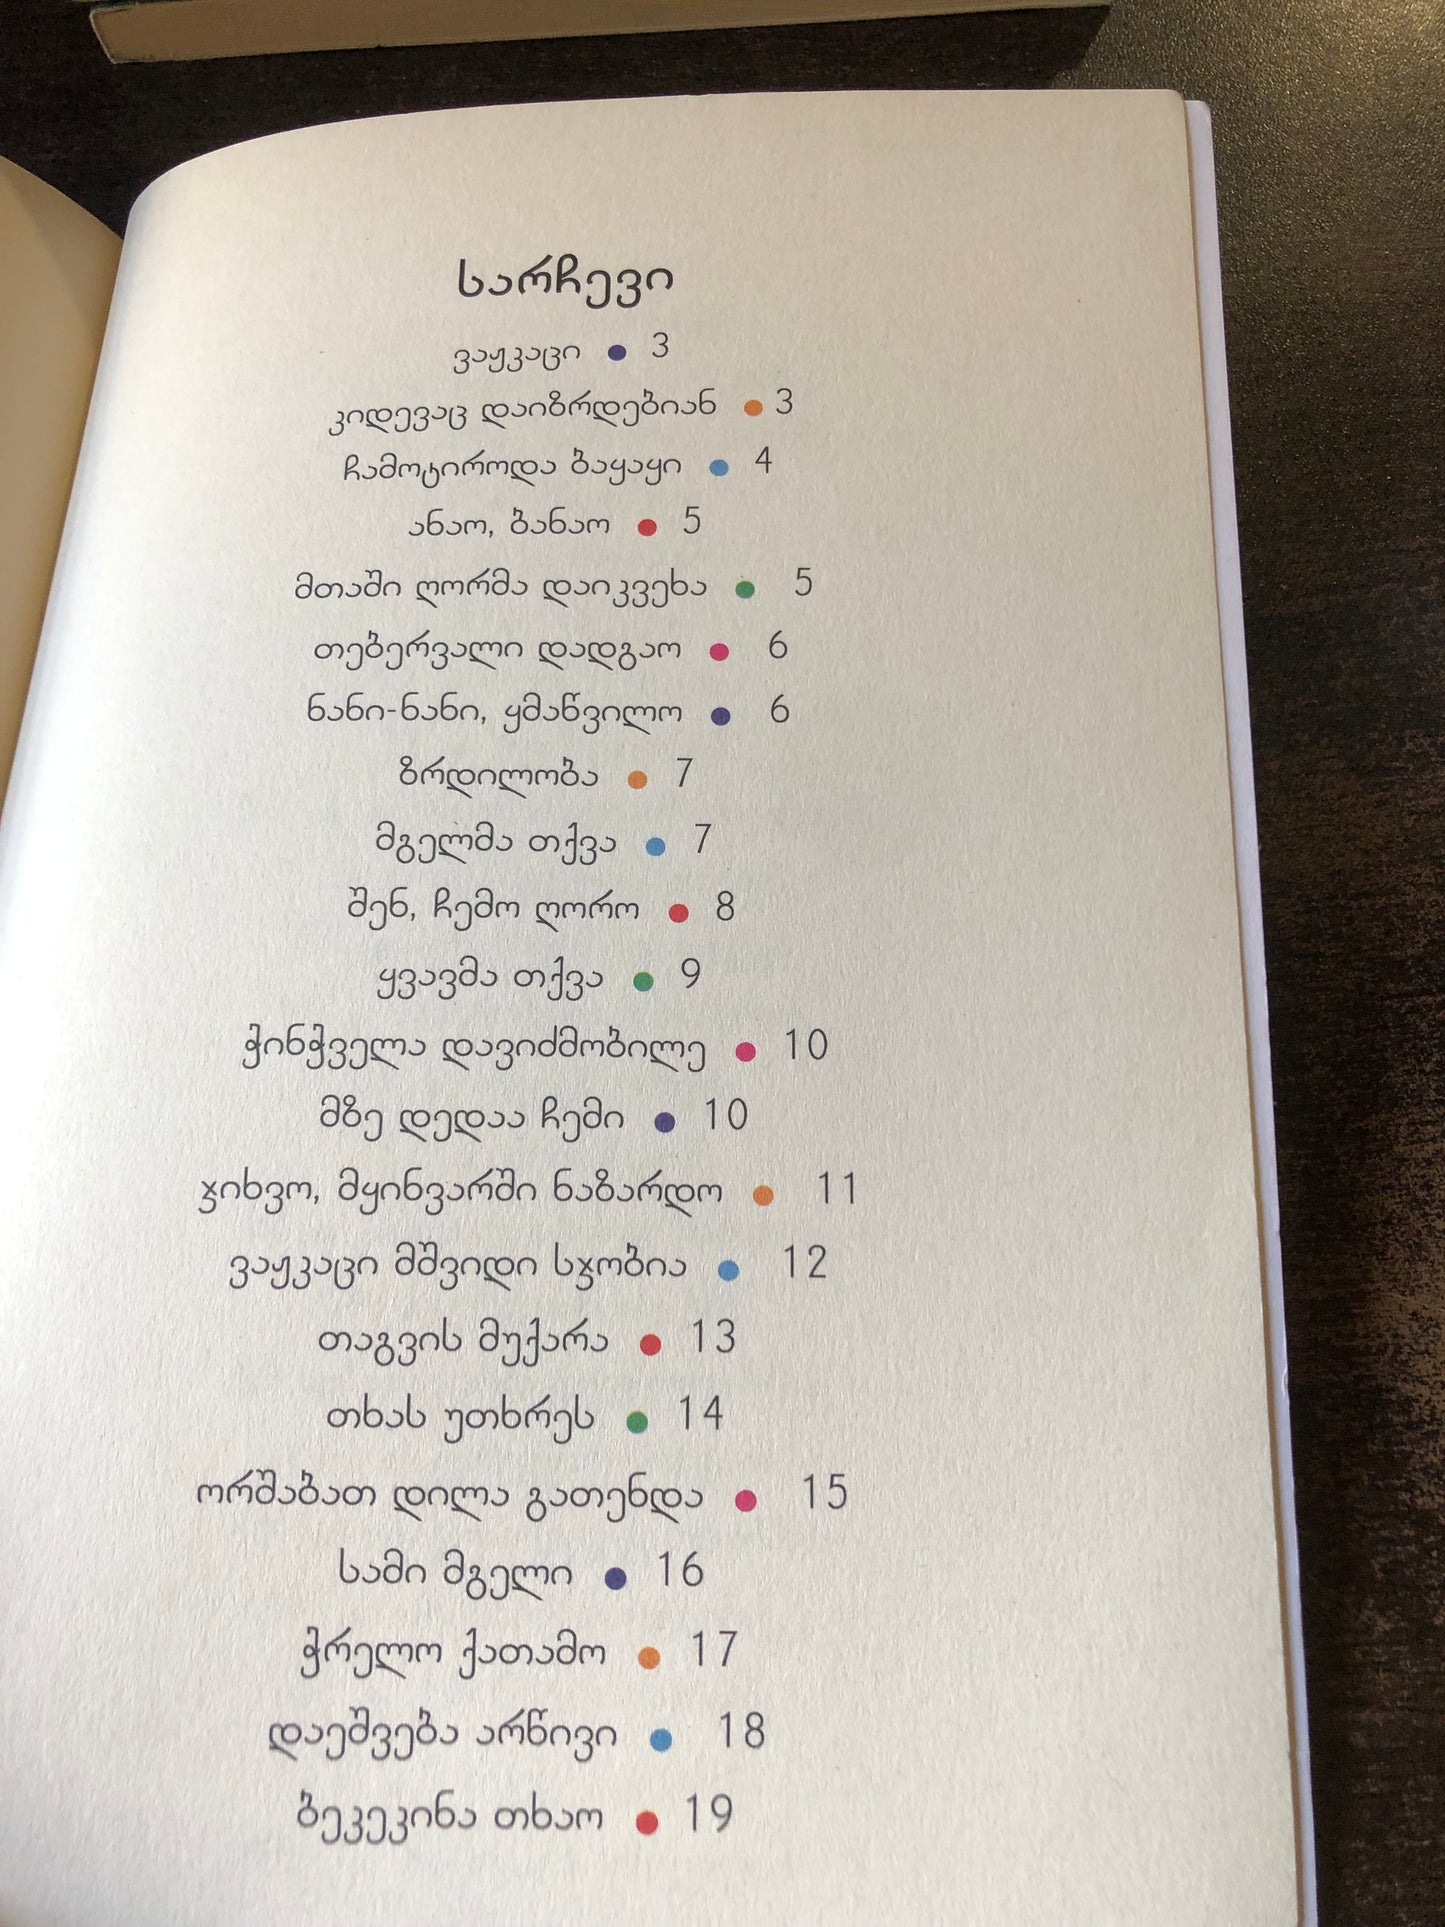 სარჩევი
ვაჟკაცი ● 3
კიდევაც დაიზრდებიან ● 3
ჩამოტიროდა ბაყაყი ● 4
ანაო, ბანაო ● 5
მთაში ღორმა დაიკვეხა ● 5
თებერვალი დადგაო ● 6
ნანი-ნანი, ყმაწვილო ● 6
ზრდილობა ● 7
მგელმა თქვა ● 7
შენ, ჩემო ღორო ● 8
ყვავმა თქვა ● 9
ჭინჭველა დავიძმობილე ● 10
მზე დედაა ჩემი ● 10
ჯიხვო, მყინვარში ნაზარდო ● 11
ვაჟკაცი მშვიდი სჯობია ● 12
თაგვის მუქარა ● 13
თხას უთხრეს ● 14
ორშაბათ დილა გათენდა ● 15
სამი მგელი ● 16
ჭრელო ქათამო ● 17
დაეშვება არწივი ● 18
ბეკეკინა თხაო ● 19